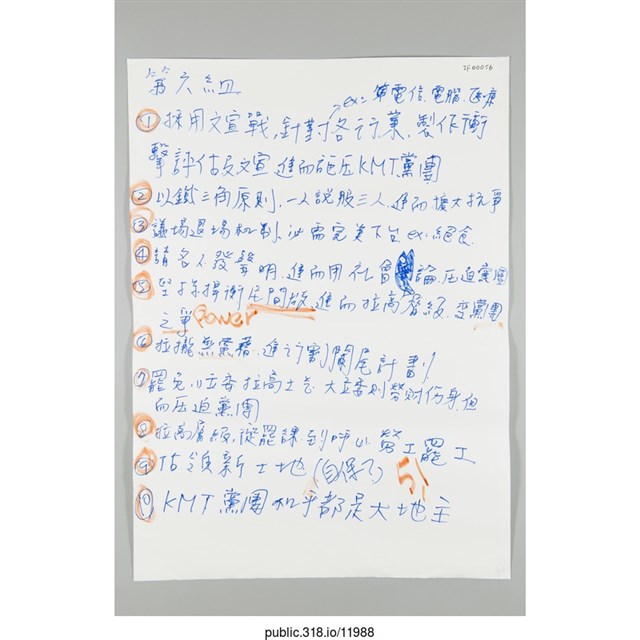 2F00056
第六組
ex: 第電信.電腦.医療
① 採用文宣戰,針對各行業,製作衝
擊評估及文宣 進而施压KMT黨團
② 以鐵三角原則,一人說服三人,進而擴大抗爭
③ 議場退場机制,必需完美下台 ex: 絕食
④ 請名人發聲明,進而用社會論压迫黨團
⑤ 堅持,進而拉高層級,变黨團
之爭 Power
⑥ 拉攏無黨籍,進行割闌尾計劃
⑦ 罷免小立委拉高士气 大立委則勞財伤身但
向压迫黨團
⑧ 拉高層級,從罷課到呼山 勞工罷工
⑨ 佔領新土地(自保了) 51
⑩ KMT黨團和乎都是大地主
public.318.io/11988